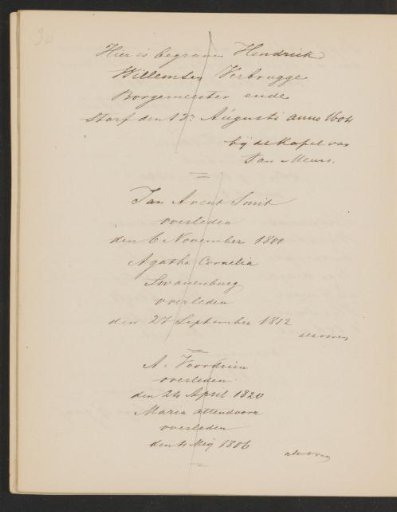 Hier is begraven Hendrick
Willemsen Verbrugge
Borgemeester ende
Starf den 12 Augusti anno 1604
bij de Kapel van
Jan Arent Smit
overleden
den 6 November 1800
Agatha Cornelia
Swanenburg
overleden
den 27 September 1812
A. Voordrin
overleden
den 24 April 1820
Maria
overleden
den 4 Meij 1806